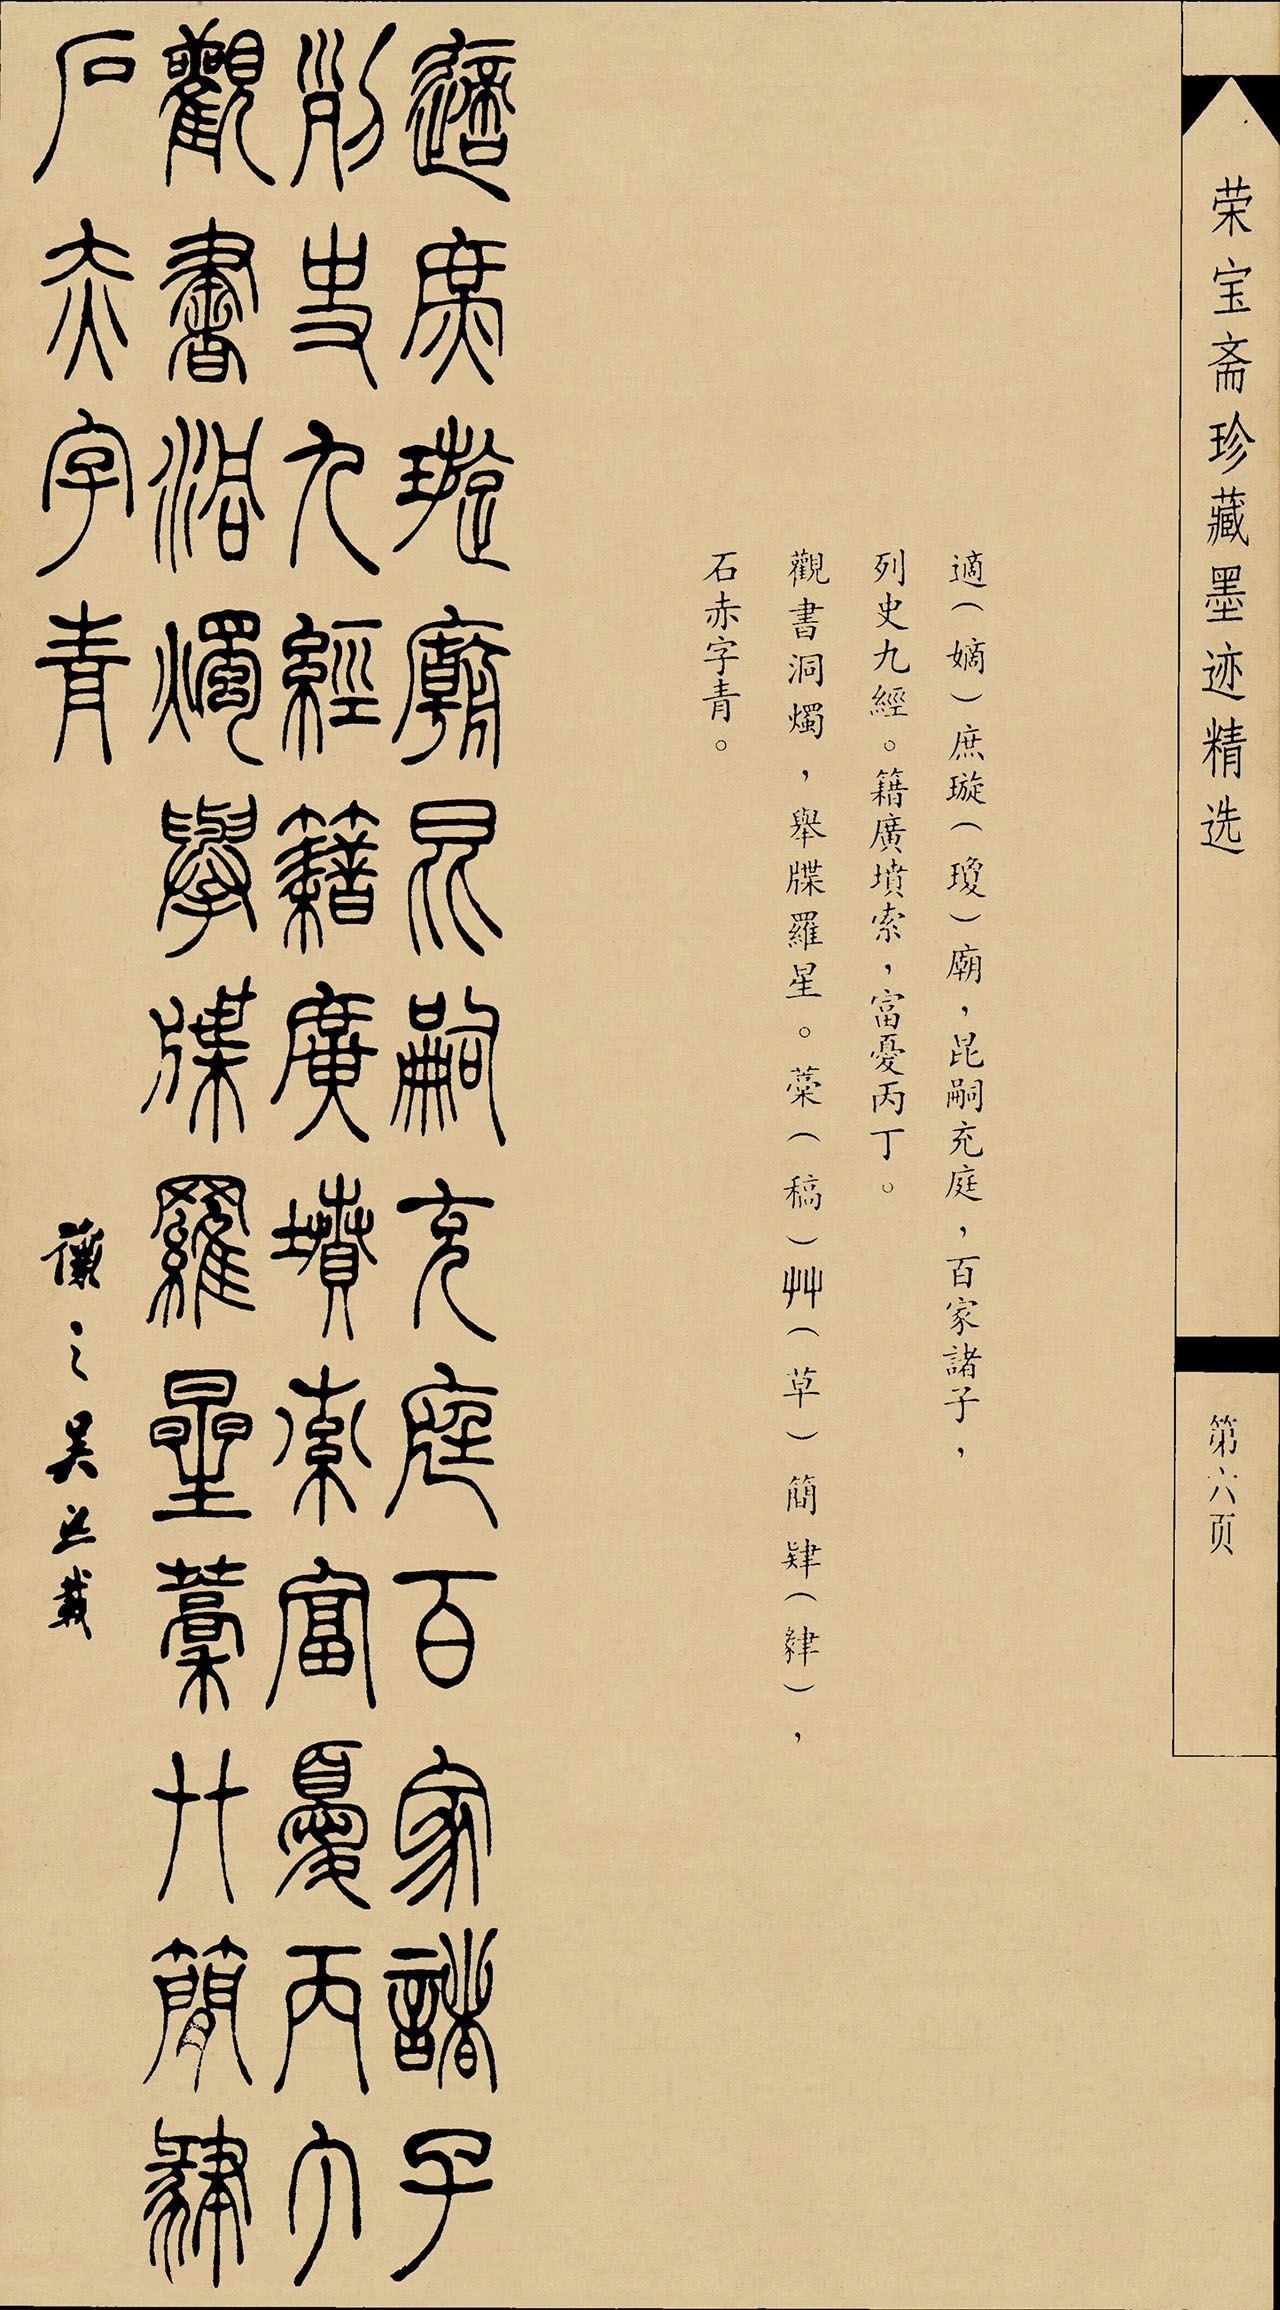 荣宝斋珍藏墨迹精选
第六页
適（嫡）庶璇（瓊）廟，昆嗣充庭，百家諸子，
列史九經。籍廣墳索，富憂丙丁。
觀書洞燭，舉牒羅星。藁（稿）艸（草）簡肄（肆），
石赤字青。
適庶璇廟昆嗣充庭百家諸子
列史九經籍廣墳索富憂丙丁
觀書洞燭舉牒羅星藁艸簡肄
石赤字青
讓之吳熙載